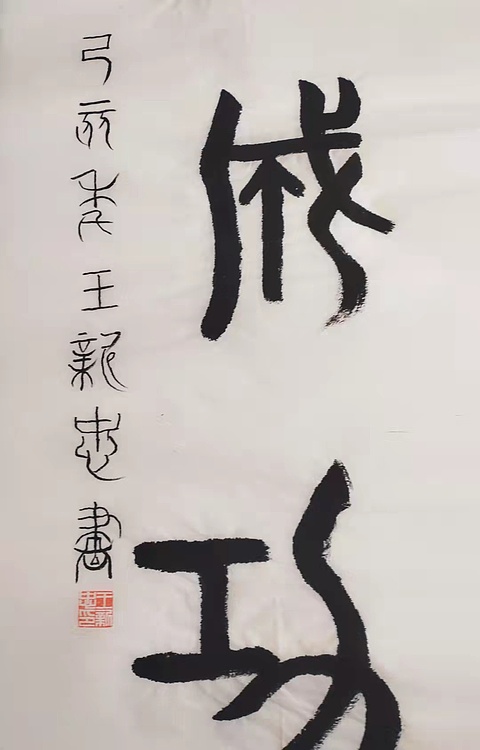 成功
己亥年王新忠書
王新忠印